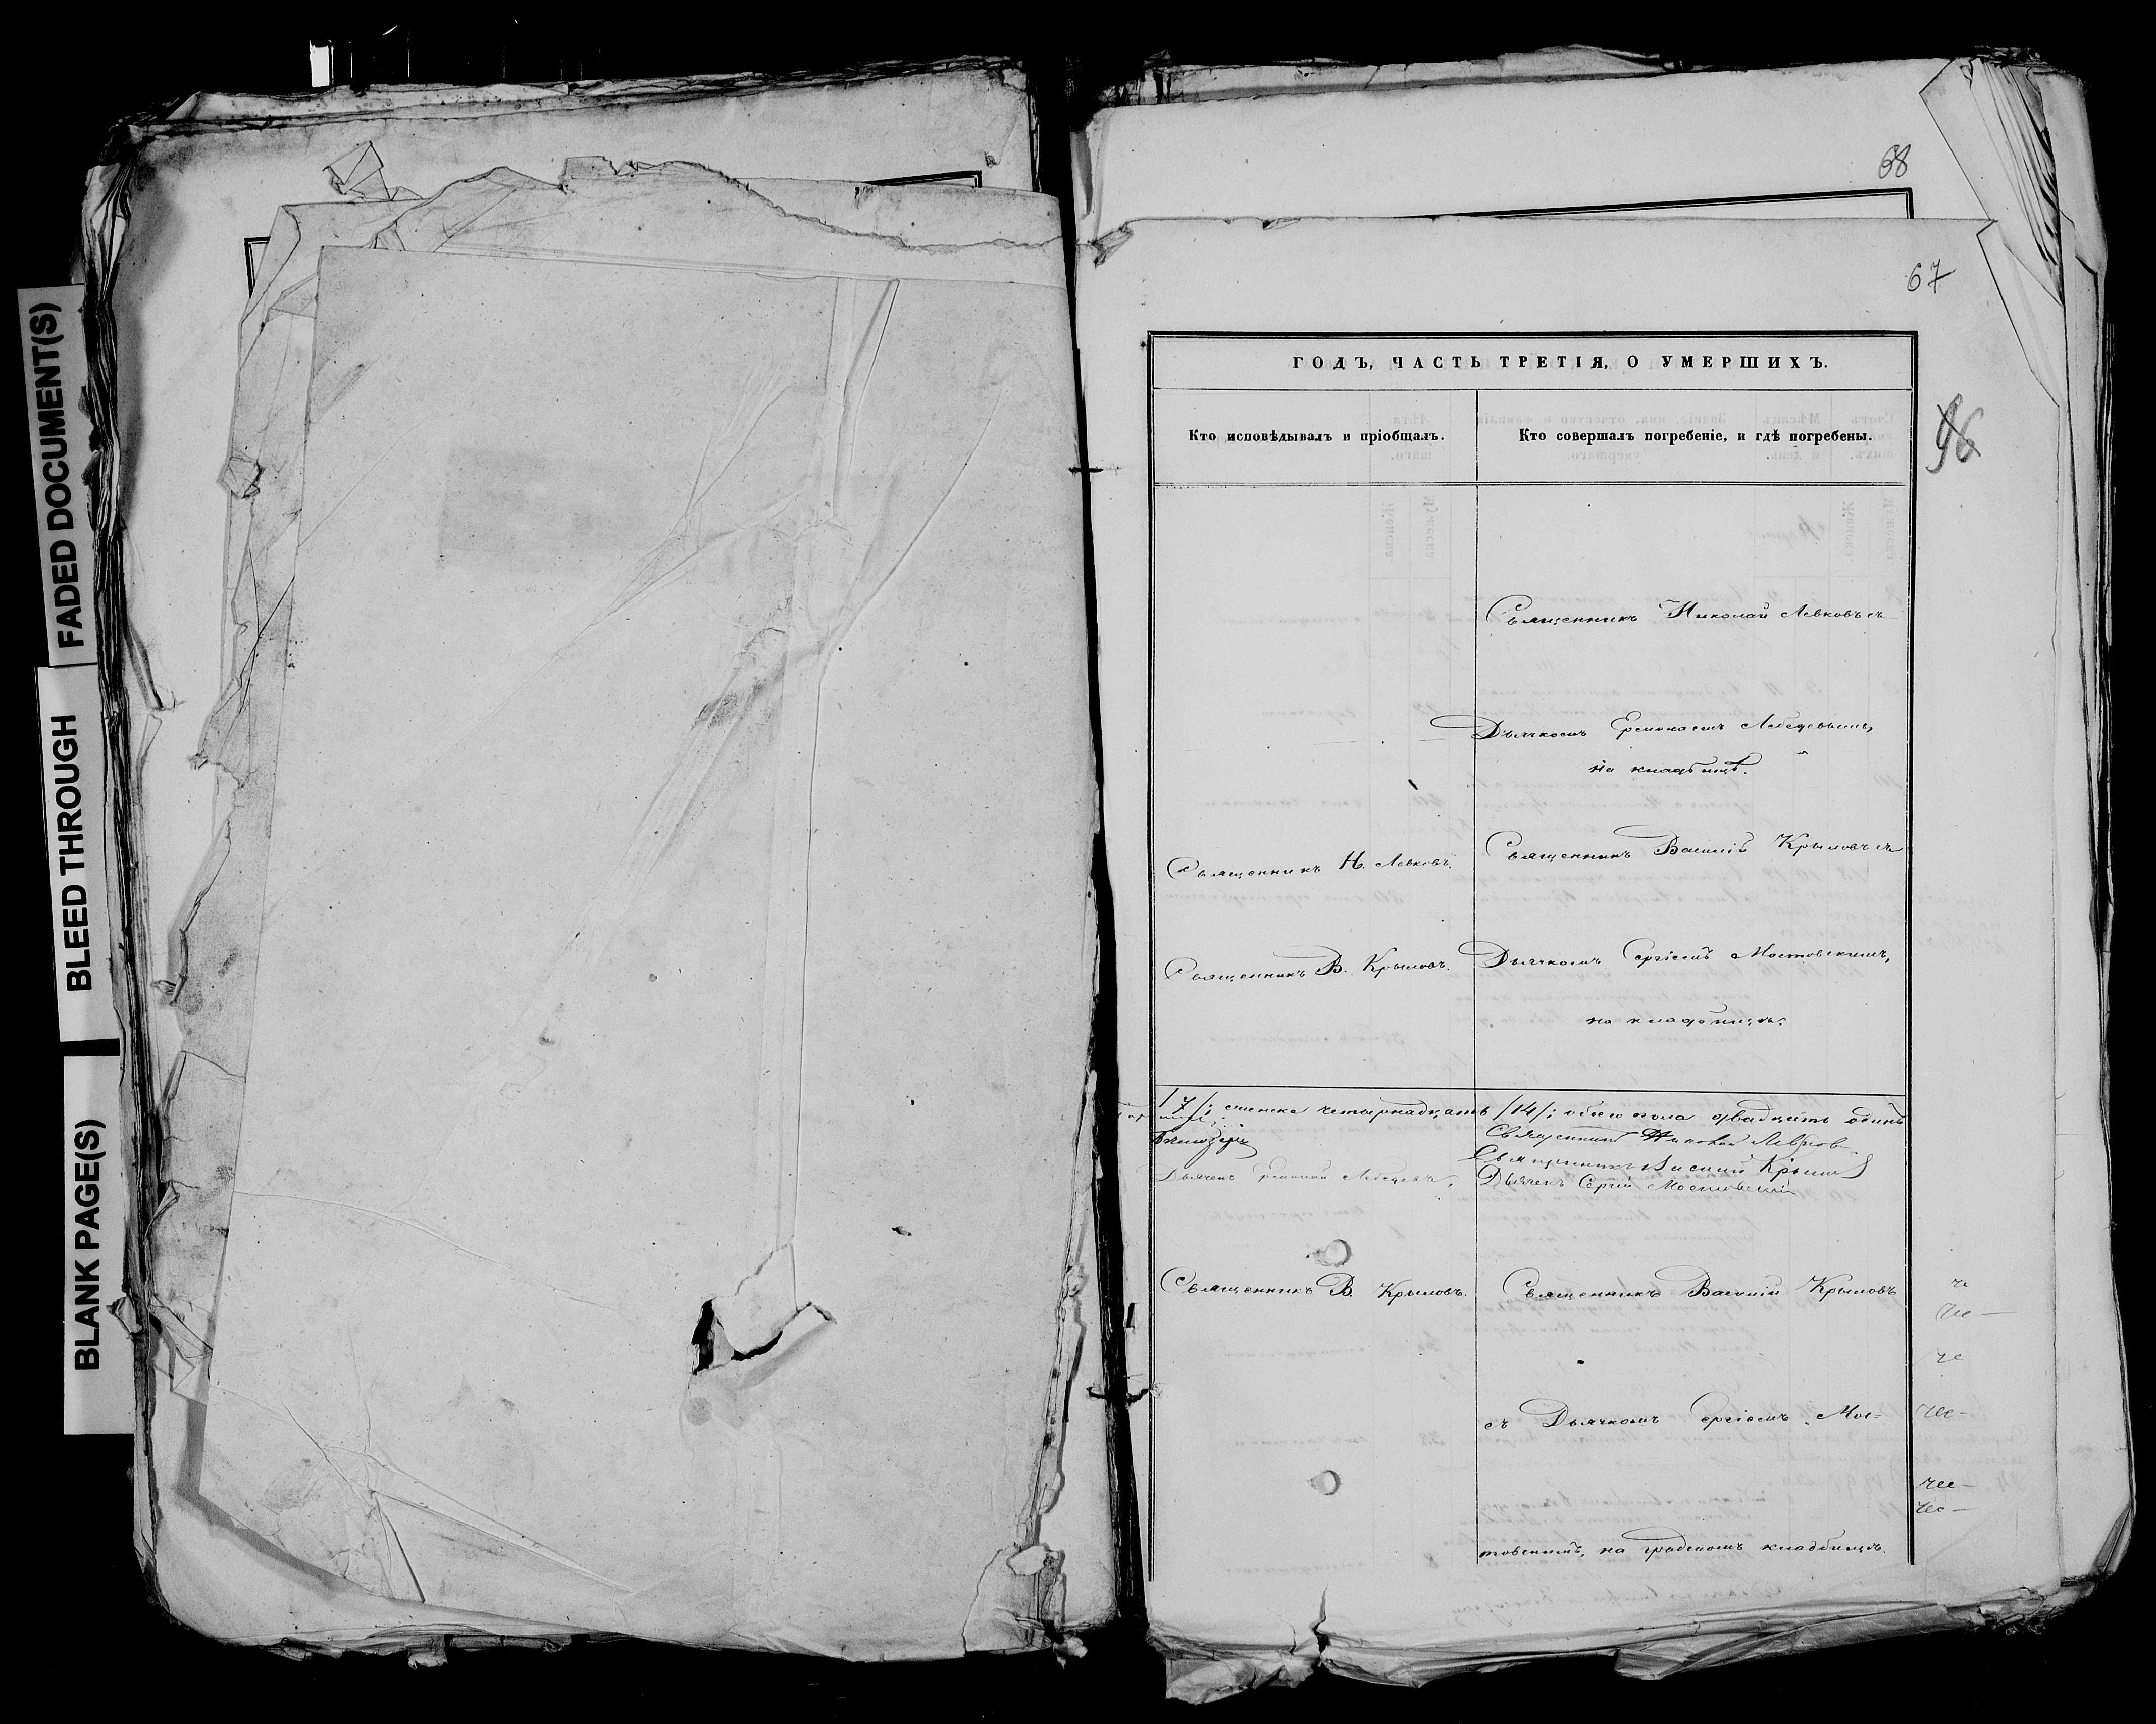 FADED DOCUMENT(S)
BLEED THROUGH
BLANK PAGE(S)
68
67
96
ГОДЪ, ЧАСТЬ ТРЕТІЯ, О УМЕРШИХЪ.
Кто исповѣдывалъ и пріобщалъ.
Кто совершалъ погребеніе, и гдѣ погребены.
Священникъ Николай Левковъ съ
Дьячкомъ Лебедевымъ,
на кладбищѣ.
Священникъ Н. Левковъ.
Священникъ Василій Крыловъ съ
Священникъ В. Крыловъ.
Дьячкомъ Сергіемъ Мостовскимъ,
на кладбищѣ.
/7/; женска четырнадцать /14/; обоего пола двадцать одинъ
Священникъ Николай Левков
Священникъ Василий Крылов
Дьячекъ Лебедевъ,
Дьячекъ Сергій Мостовскій
Священникъ В. Крыловъ.
Священникъ Василій Крыловъ
съ Дьячкомъ Сергіемъ Мос=
товскимъ, на градскомъ кладбищѣ.